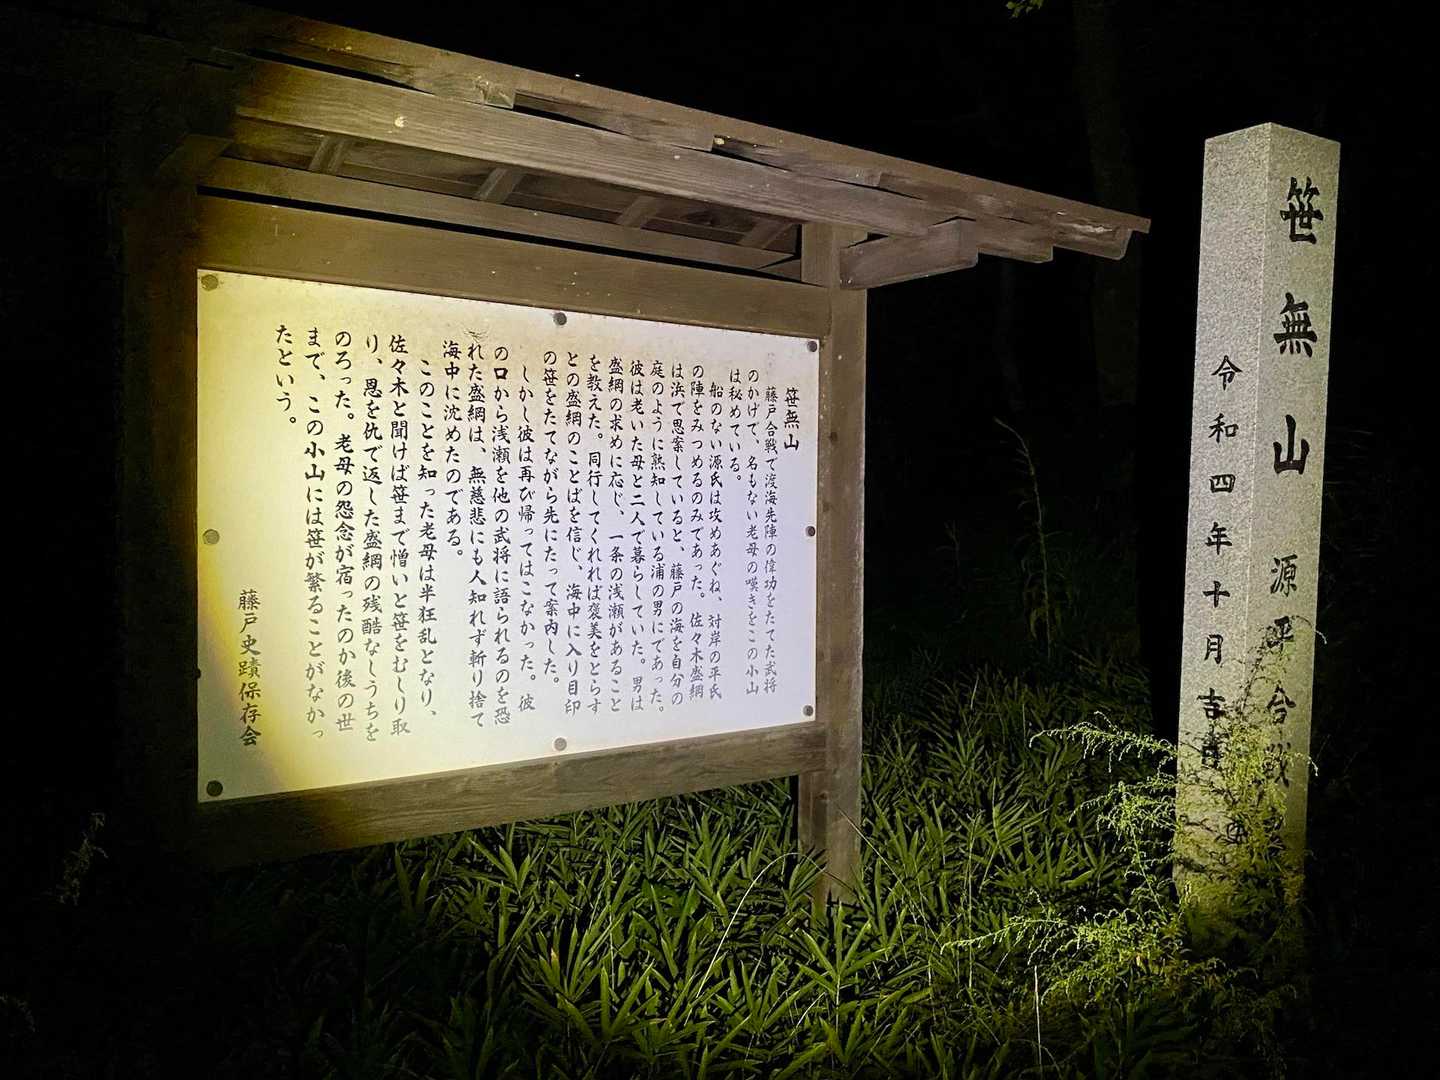 笹無山
藤戸合戦で渡海先陣の偉功をたてた武将
のかげで、名もない老母の嘆きをこの小山
は秘めている。
船のない源氏は攻めあぐね、対岸の平氏
の陣をみつめるのみであった。佐々木盛綱
は浜で思案していると、藤戸の海を自分の
庭のように熟知している浦の男にであった。
彼は老いた母と二人で暮らしていた。男は
盛綱の求めに応じ、一条の浅瀬があること
を教えた。同行してくれれば褒美をとらす
との盛綱のことばを信じ、海中に入り目印
の笹をたてながら先にたって案内した。
しかし彼は再び帰ってはこなかった。彼
の口から浅瀬を他の武将に語られるのを恐
れた盛綱は、無慈悲にも人知れず斬り捨て
海中に沈めたのである。
このことを知った老母は半狂乱となり、
佐々木と聞けば笹まで憎いと笹をむしり取
り、恩を仇で返した盛綱の残酷なしうちを
のろった。老母の怨念が宿ったのか後の世
まで、この小山には笹が繁ることがなかっ
たという。
藤戸史蹟保存会
笹無山 源平合戦
令和四年十月吉